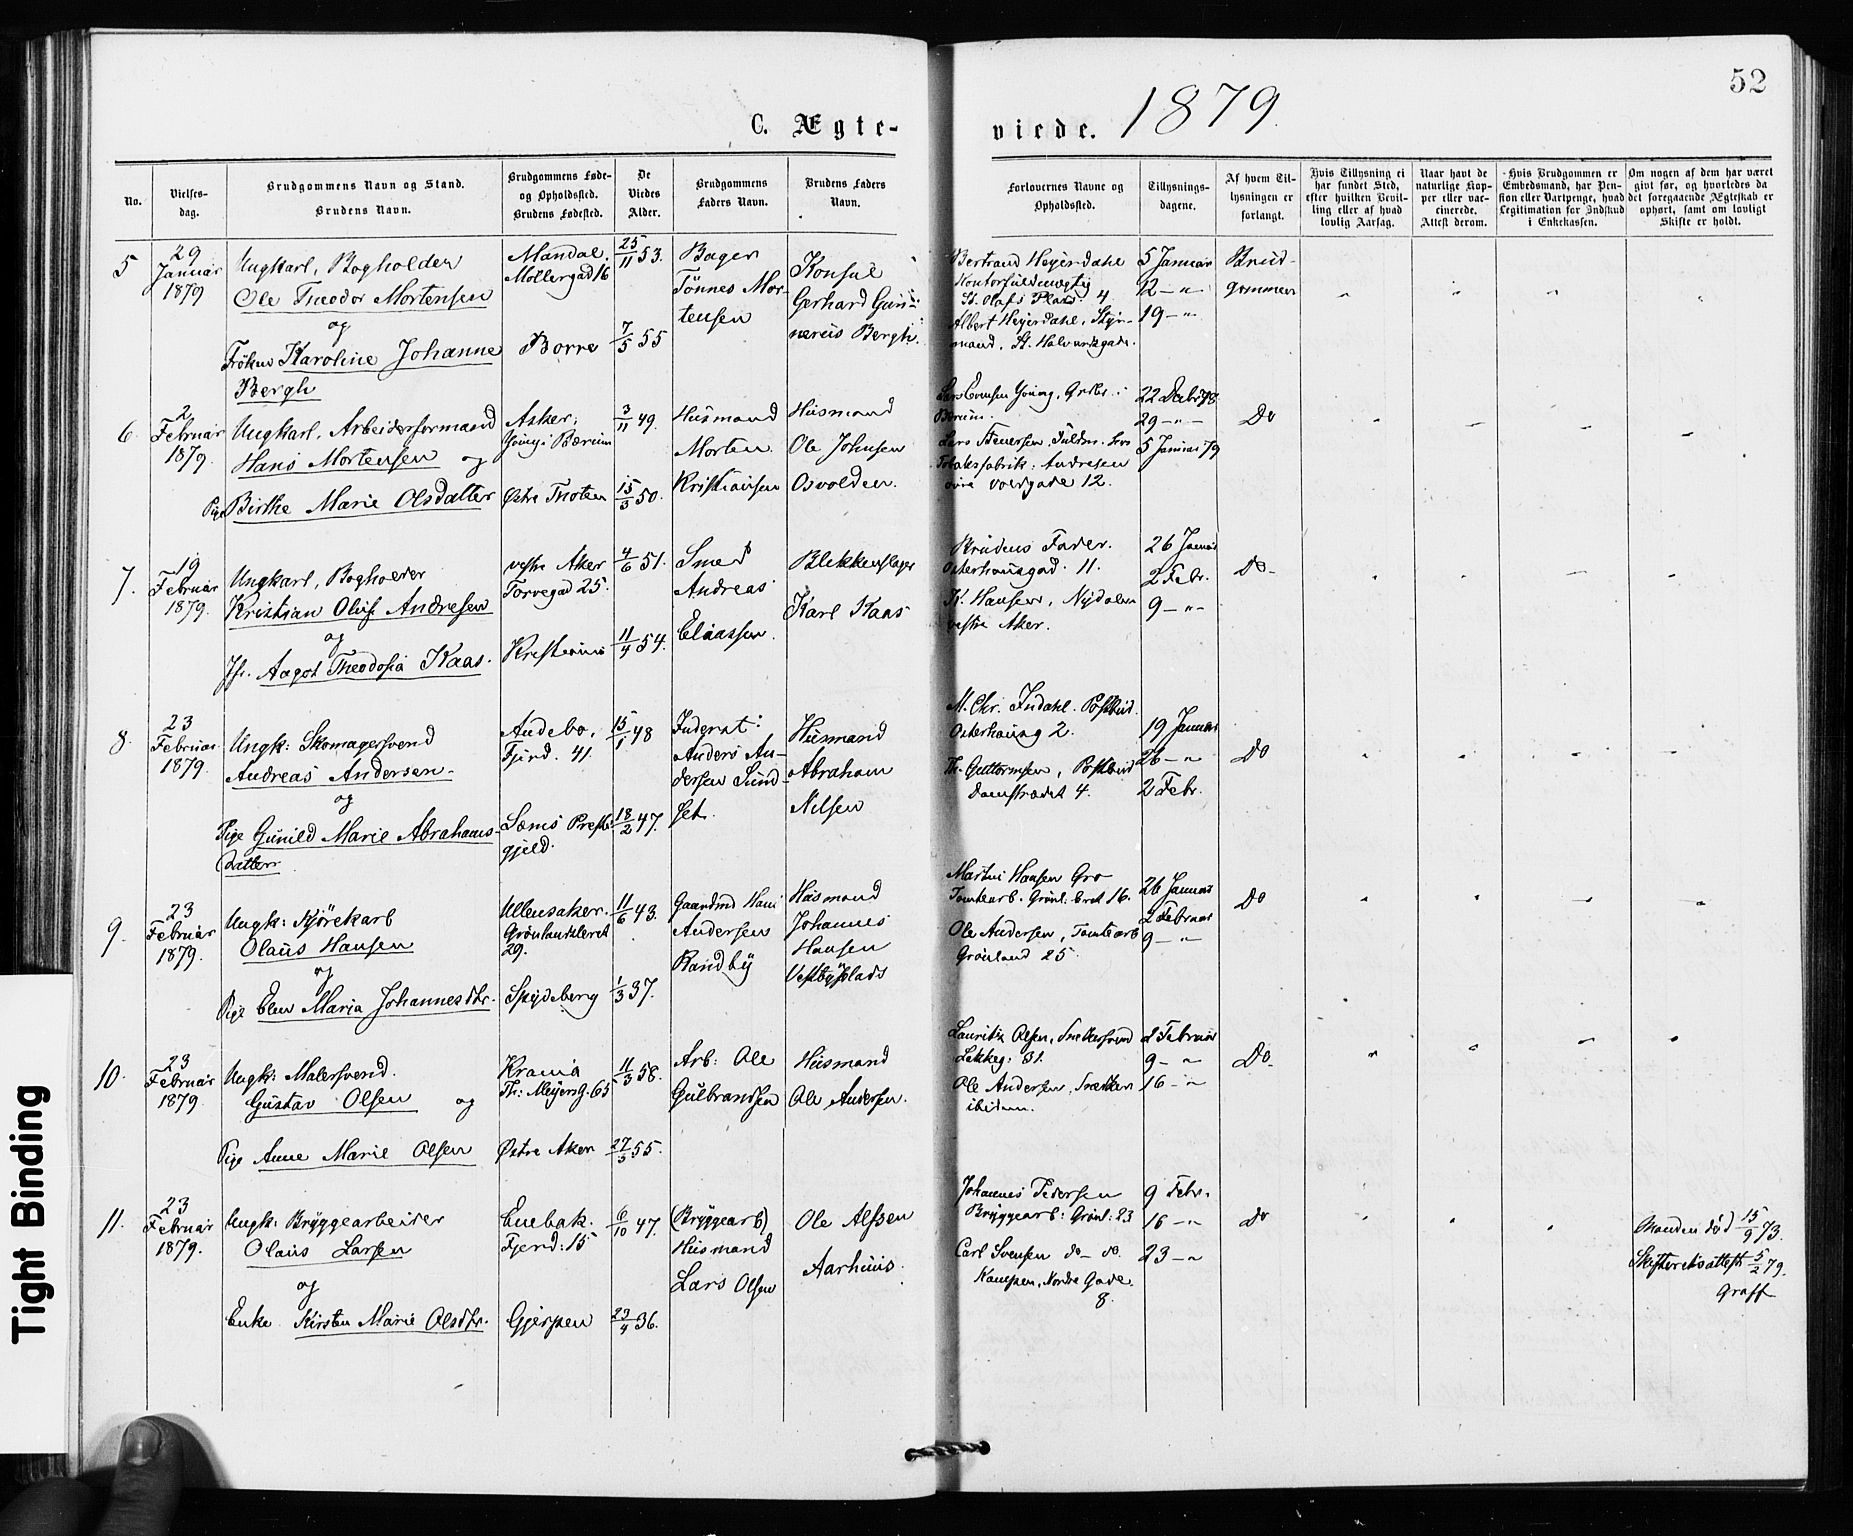 52
C. Ægte-
viede. 1879.
No.
Vielses-
dag.
Brudgommens Navn og Stand.
Brudens Navn.
Brudgommens Føde-
og Opholdssted.
Brudens Fødested.
De
Viedes
Alder.
Brudgommens
Faders Navn.
Brudens Faders
Navn.
Forlovernes Navne og
Opholdssted.
Tillysnings-
dagene.
Af hvem Til-
lysningen er
forlangt.
Hvis Tillysning ei
har fundet Sted,
efter hvilken Bevil-
ling eller af hvad
lovlig Aarsag.
Naar havt de
naturlige Kop-
per eller vac-
cinerede.
Attest derom.
Hvis Brudgommen er
Embedsmand, har Pen-
sion eller Vartpenge, hvad
Legitimation for Indskud
i Enkekassen.
Om nogen af dem har været
givt før, og hvorledes da
det foregaaende Ægteskab er
ophørt, samt om lovligt
Skifte er holdt.
5
29
Januar
1879
Ungkarl, Bogholder
Ole Theodor Mortensen
og
Frøken Karoline Johanne
Bergh
Mandal.
Møllergad 16
Borre
25/11 53.
7/5 55
Bager
Tönnes Mor-
tensen
Konsul
Gerhard Gun-
nerius Bergh.
Bertrand Heyerdahl
Kontorfuldmægtig
St. Olafs Plads. 4
Albert Heyerdahl, Styr-
mand, St. Halvardsgade.
5 Januar
12 - "
19 - "
Brud-
gommen
6
2
Februar
1879.
Ungkarl, Arbeidersformand
Hans Mortensen og
Pige Birthe Marie Olsdatter
Asker,
Young i Bærum
Østre Thoten
3/11 49.
15/3 50.
Husmand
Morten
Kristiansen
Husmand
Ole Johnsen
Osvolden.
Lars Evensen Young,
Bærum.
Tobaksfabrik: Andresen
øvre Voldgade 12.
22 Decbr 78
29 - "
5 Januar 79
Do
7.
19
Februar
1879.
Ungkarl, Bogholder
Kristian Oluf Andresen
og
Jfr. Aagot Theodosia Kaas.
vestre Aker
Torvegad 25.
Kristiania
4/6 51.
11/4 54.
Smed
Andreas
Eliassen.
Blikkenslager
Karl Kaas
Brudens Fader.
Osterhausgad. 11.
K. Hansen, Nydalen
vestre Aker.
26 Januar
2 Febr.
9 - "
Do-
8.
23
Februar
1879
Ungk: Skomagersvend
Andreas Andersen
og
Pige Gunild Marie Abrahams-
datter
Andebo.
Fjerd. 41.
Sems Preste-
gjeld.
15/1 48
18/2 47.
Inderst:
Anders An-
dersen Sund-
set.
Husmand
Abraham
Nilsen
M. Chr. Indahl. Postbud.
Osterhausg 2.
Th. Guttormsen, Postbud
Damstrædet 4.
19 Januar
26 - "
2 Febr.
Do
9.
23
Februar
1879.
Ungk: Kjørekarl
Olaus Hansen
og
Pige Elen Maria Johannesdtr.
Ullensaker.
Grønlandsleret
29.
Spydeberg
11/6 43.
1/3 37.
Gaardmd Hans
Andersen
Randby
Husmand
Johannes
Hansen
Vestbyplads
Martin Hansen Gro
Tomtearb. Grønl. Leret 16.
Ole Andersen, Tomtearb
Grønland 25
26 Januar
2 Februar
9 - "
Do
10.
23
Februar
1879.
Ungk: Malersvend.
Gustav Olsen og
Pige Anne Marie Olsen
Krania
Th: Meyersg. 65
Østre Aker
11/3 58.
27/5 55.
Arb: Ole
Gulbrandsen
Husmand
Ole Andersen.
Lauritz Olsen, Snekkersvend
Lakkeg: 31.
Ole Andersen, Snekker
ibidem.
2 Februar
9 - "
16 - "
Do
11.
23
Februar
1879.
Ungk: Bryggearbeider
Olaus Larsen
og
Enke Kirsten Marie Olsdtr.
Enebak.
Fjerd: 15
Gjerpen
6/10 47.
23/4 36.
(Bryggearb)
Husmand
Lars Olsen
Ole Alfsen
Aarhuus.
Johannes Pedersen
Bryggearb: Grønl: 23
Carl Svensen do- do.
Kampen, Nordre Gade
8.
9 Febr.
16 - "
23 - "
Do
Manden død 15/9 73.
Skifteretsattest 5/2 79.
Graff
Tight Binding